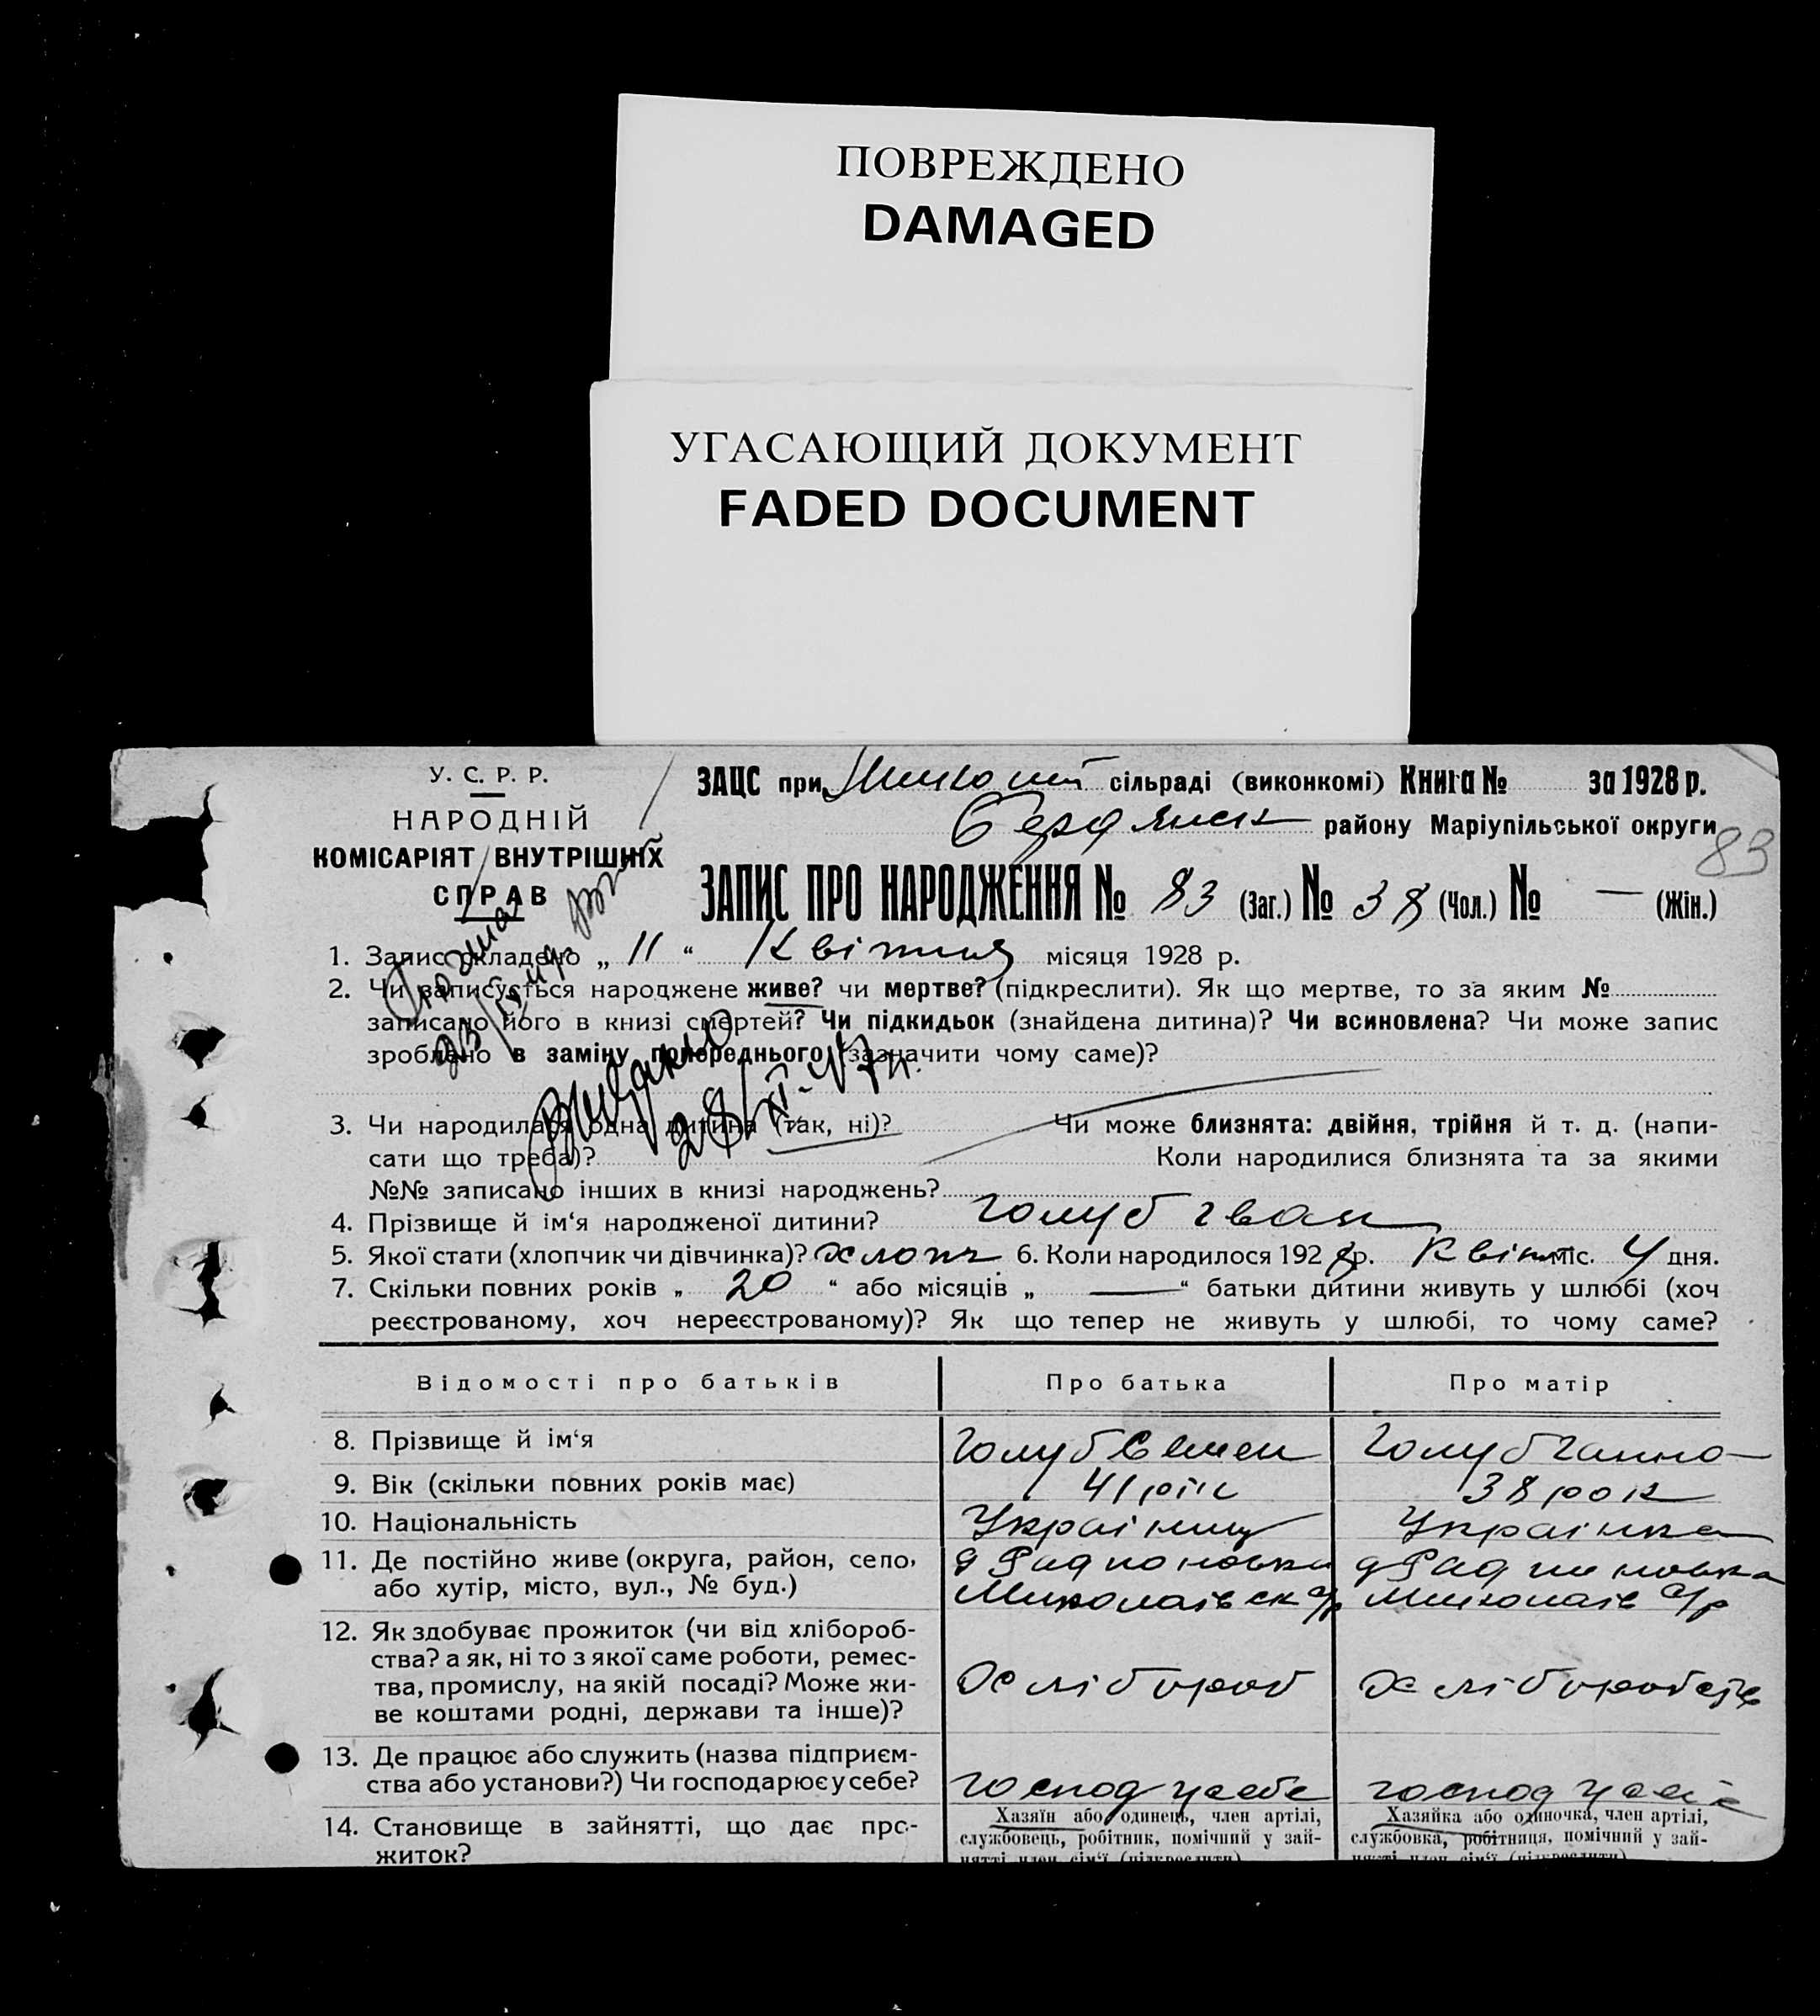 ПОВРЕЖДЕНО
DAMAGED
УГАСАЮЩИЙ ДОКУМЕНТ
FADED DOCUMENT
У. С. Р. Р.
НАРОДНІЙ
КОМІСАРІЯТ ВНУТРІШНІХ
СПРАВ
ЗАЦС при сільраді (виконкомі) Книга № за 1928 р.
Бердянськ району Маріупільської округи
83
ЗАПИС ПРО НАРОДЖЕННЯ № 83 (Заг.) № 38 (Чол.) № — (Жін.)
1. Запис складено „ 11 “ Квітня місяця 1928 р.
2. Чи записується народжене живе? чи мертве? (підкреслити). Як що мертве, то за яким №
записано його в книзі смертей? Чи підкидьок (знайдена дитина)? Чи всиновлена? Чи може запис
зроблено в заміну попереднього (зазначити чому саме)?
Видано
28/XI-47 г.
3. Чи народилася одна дитина (так, ні)? Чи може близнята: двійня, трійня й т. д. (напи-
сати що треба)? Коли народилися близнята та за якими
№№ записано інших в книзі народжень?
4. Прізвище й ім‘я народженої дитини? Голуб Іван
5. Якої стати (хлопчик чи дівчинка)? хлопч 6. Коли народилося 192 8 р. Квіт міс. 4 дня.
7. Скільки повних років „ 20 “ або місяців „ — “ батьки дитини живуть у шлюбі (хоч
реєстрованому, хоч нереєстрованому)? Як що тепер не живуть у шлюбі, то чому саме?
Відомості про батьків Про батька Про матір
8. Прізвище й ім‘я Голуб Семен Голуб Ганна
9. Вік (скільки повних років має) 41 рік 38 рок
10. Національність Українець Українка
11. Де постійно живе (округа, район, село,
або хутір, місто, вул., № буд.) Миколаївск с/р Миколаїв с/р
12. Як здобуває прожиток (чи від хлібороб-
ства? а як, ні то з якої саме роботи, ремес-
тва, промислу, на якій посаді? Може жи-
ве коштами родні, держави та інше)? Хлібороб
13. Де працює або служить (назва підприєм-
ства або установи?) Чи господарює у себе? господ у себе господ у себе
14. Становище в зайнятті, що дає про-
житок?
Хазяїн або одинець, член артілі,
службовець, робітник, помічний у зай-
нятті член сім‘ї (підкреслити)
Хазяйка або одиночка, член артілі,
службовка, робітниця, помічний у зай-
нятті член сім‘ї (підкреслити)